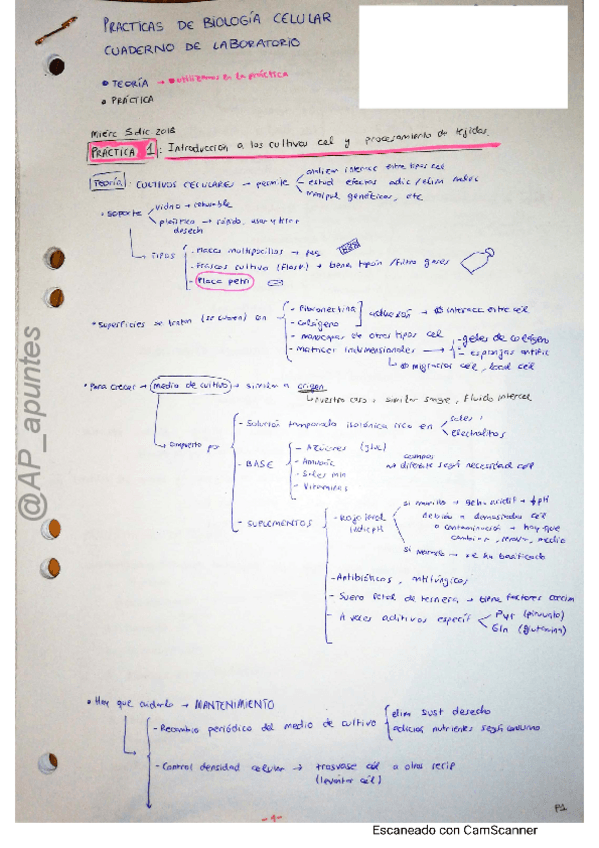 PRACTICAS DE BIOLOGÍA CELULAR
CUADERNO DE LABORATORIO
• TEORÍA → • utilizamos en la práctica
• PRÁCTICA
Mierc 5 dic 2018
PRÁCTICA 1: Introducción a los cultivos cel y procesamiento de tejidos.
Teoría: CULTIVOS CELULARES → permite
analizar interacc entre tipos cel
estud efectos adic/elim
manipul genéticas, etc
• soporte
vidrio → reusable
plástico → rápido, usar y tirar
desech
→ TIPOS
- Placas multipocillos → peq
- Frascos cultivo (Flask) → tiene tapón/filtro gases
- Placa petri
• Superficies se tratan (se cubren) con
- Fibronectina
- Colágeno
adhesión → interacc entre cél
- monocapas de otros tipos cél
- Matrices tridimensionales →
- geles de colágeno
- esponjas artific
↳ migración cél, local cél
• Para crecer → medio de cultivo → similar a origen
↳ nuestro caso: similar sangre, fluido intercel
compuesto por
- Solución tamponada isotónica rica en
sales
electrolitos
- BASE
- Azúcares (gluc)
- Aminoác
- Sales min
- Vitaminas
→ diferente según necesidad cél
- SUPLEMENTOS
- Rojo fenol
indic pH
si amarillo → acidif → ↓pH
debido a demasiadas cél
o contaminación → hay que
cambiar, renovar, medio
si morado → se ha basificado
- Antibióticos, antifúngicos
- Suero fetal de ternera → tiene factores crecim
- A veces aditivos específ
Pyr (piruvato)
Gln (glutamina)
• Hay que cuidarlo → MANTENIMIENTO
- Recambio periódico del medio de cultivo
elim sust desecho
adición nutrientes según consumo
- Control densidad celular → trasvase cél a otros recip
(levantar cél)
-1-
P1
@AP_apuntes
Escaneado con CamScanner